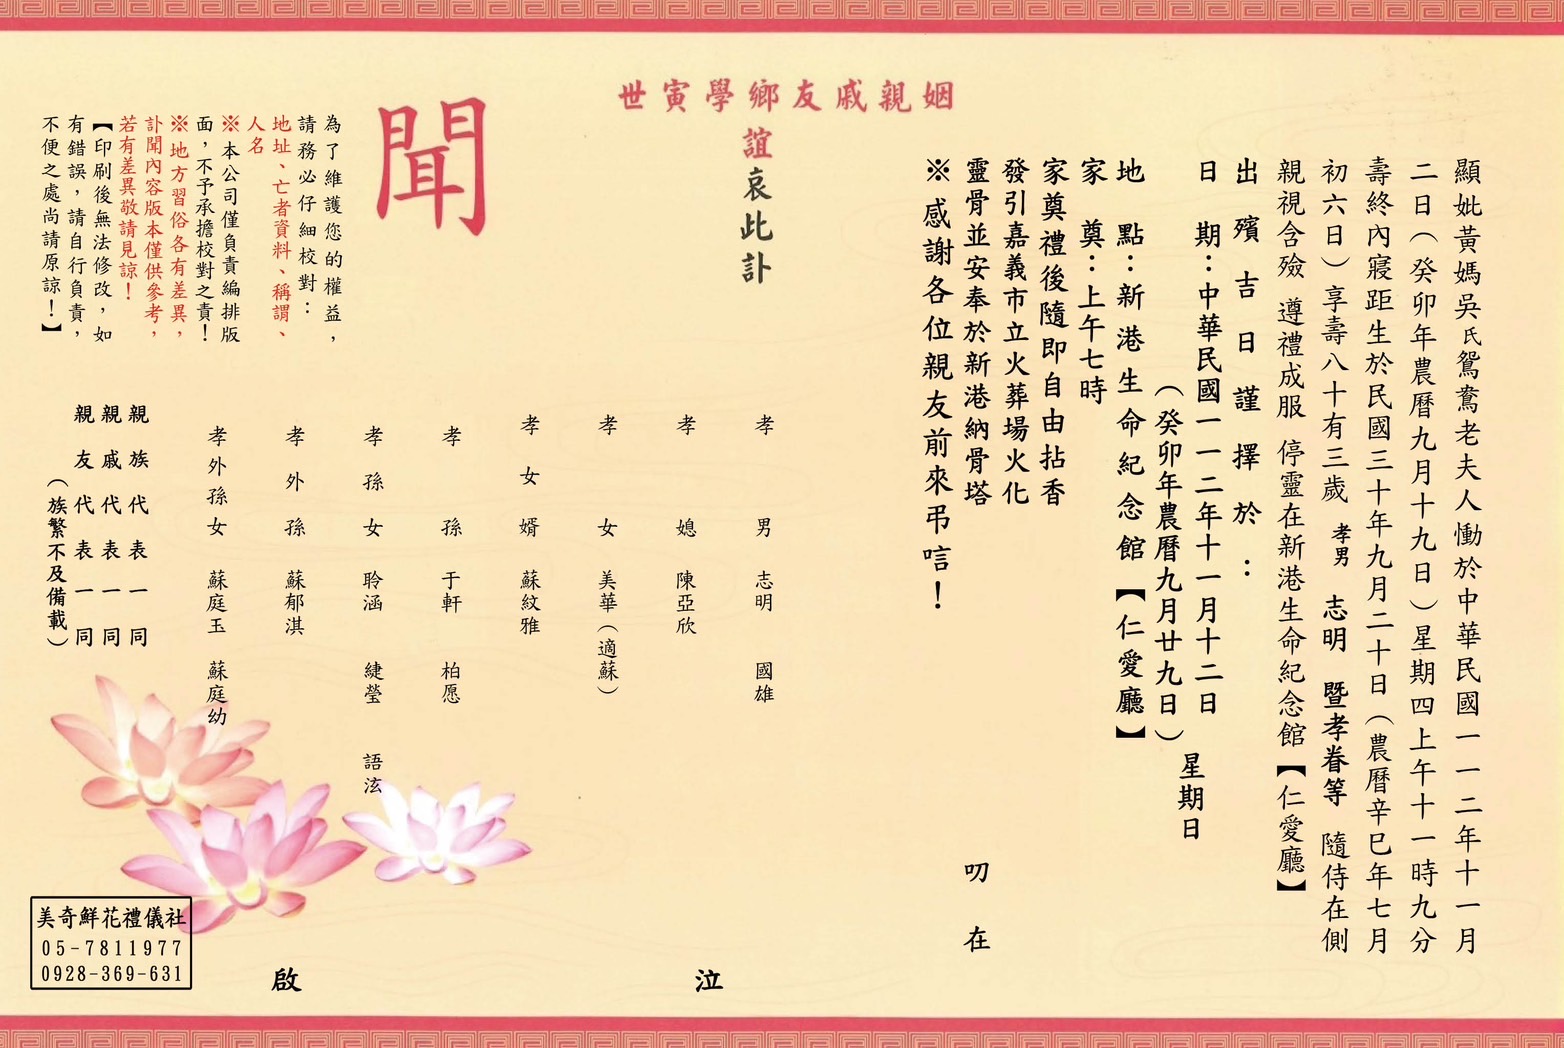 顯妣黃媽吳氏鴛鴦老夫人慟於中華民國一一二年十一月
二日（癸卯年農曆九月十九日）星期四上午十一時九分
壽終內寢距生於民國三十年九月二十日（農曆辛巳年七月
初六日）享壽八十有三歲 孝男 志明 暨孝眷等 隨侍在側
親視含殮 遵禮成服 停靈在新港生命紀念館【仁愛廳】
出殯吉日謹擇於：
日 期：中華民國一一二年十一月十二日
（癸卯年農曆九月廿九日）
星期日
地 點：新港生命紀念館【仁愛廳】
家 奠：上午七時
家奠禮後隨即自由拈香
發引嘉義市立火葬場火化
靈骨並安奉於新港納骨塔
※感謝各位親友前來弔唁！
叨 在
姻親戚友鄉學寅世
誼哀此訃
聞
孝 男 志明 國雄
孝 媳 陳亞欣
孝 女 美華（適蘇）
孝 女 婿 蘇紋雅
孝 孫 于軒 柏愿
孝 孫 女 聆涵 緁瑩 語泫
孝 外 孫 蘇郁淇
孝外孫女 蘇庭玉 蘇庭幼
泣
啟
親族代表一同
親戚代表一同
親友代表一同
（族繁不及備載）
為了維護您的權益，
請務必仔細校對：
地址、亡者資料、稱謂、
人名
※本公司僅負責編排版
面，不予承擔校對之責！
※地方習俗各有差異，
訃聞內容版本僅供參考，
若有差異敬請見諒！
【印刷後無法修改，如
有錯誤，請自行負責，
不便之處尚請原諒！】
美奇鮮花禮儀社
05-7811977
0928-369-631